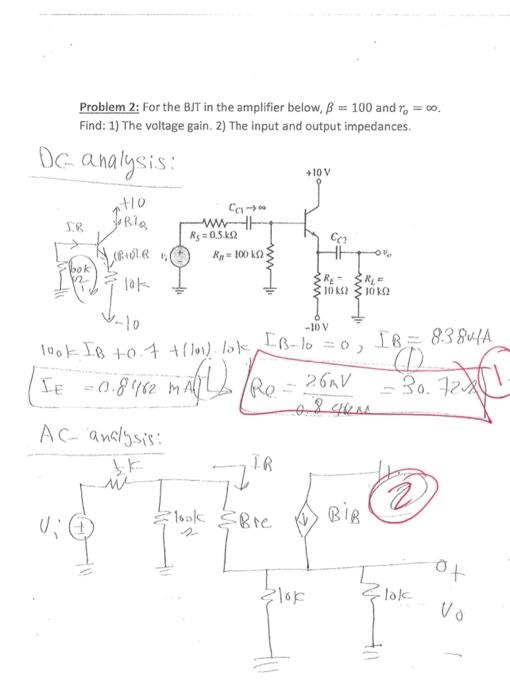 Problem 2: For the BJT in the amplifier below, β = 100 and rₒ = ∞.
Find: 1) The voltage gain. 2) The input and output impedances.
DC analysis:
+10 V
+10
βIB
IB
(β+1)IB
100k
10k
-10
C_C1 → ∞
R_S = 0.5 kΩ
R_B = 100 kΩ
C_C2
vₒ
R_E = 10 kΩ
R_L = 10 kΩ
–10 V
100k IB + 0.7 + (101) 10k IB - 10 = 0, IB = 8.38 uA
IE = 0.8462 mA
Re = 26mV = 30.72Ω
AC analysis:
IB
Vi
100k
Bre
BiB
2
10k
10k
+
Vo
-